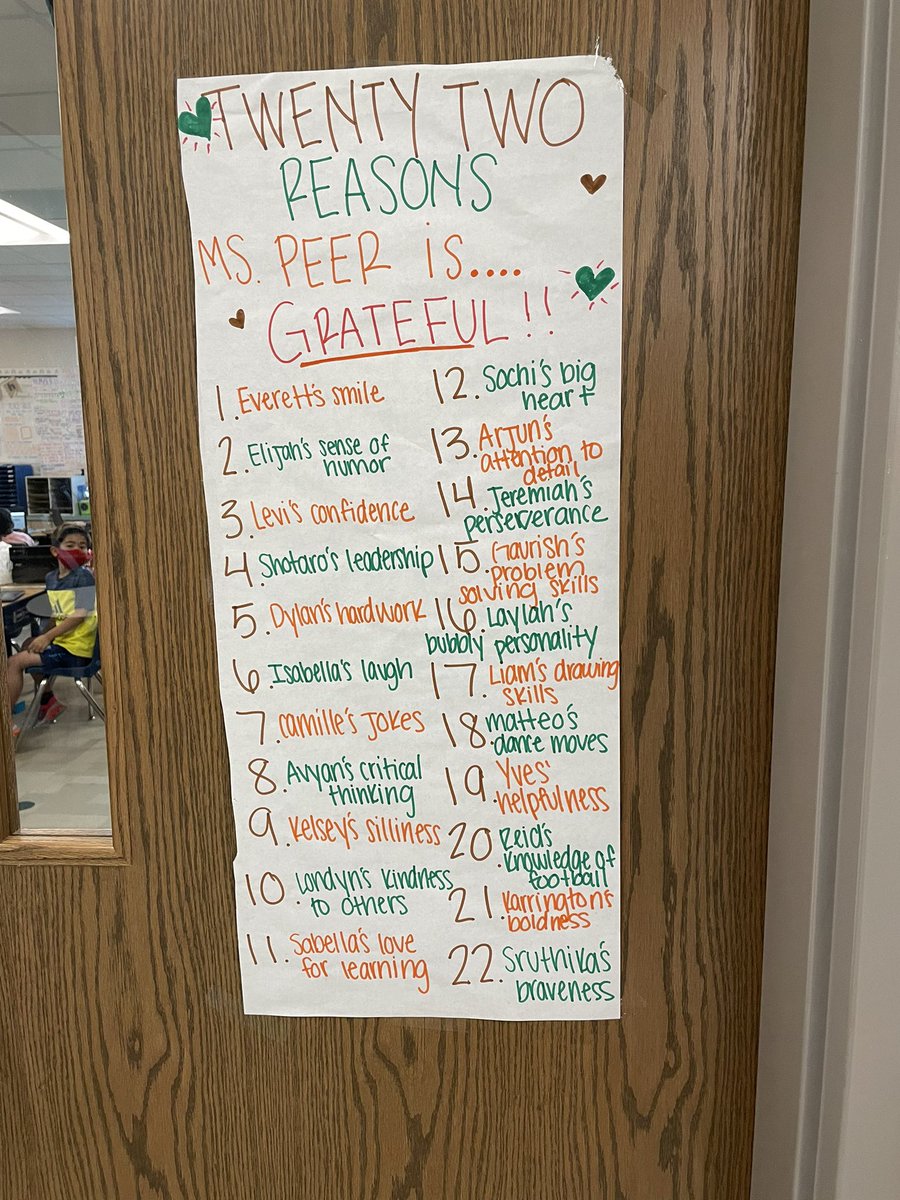 TWENTY TWO
REASONS
MS. PEER is....
GRATEFUL!!
1. Everett's smile
2. Elijah's sense of
humor
3. Levi's confidence
4. Shotaro's leadership
5. Dylan's hardwork
6. Isabella's laugh
7. Camille's jokes
8. Avyan's critical
thinking
9. Kelsey's silliness
10. Londyn's kindness
to others
11. Sabella's love
for learning
12. Sochi's big
heart
13. Arjun's
attention to
detail
14. Jeremiah's
perserverance
15. Gaurish's
problem
solving skills
16. Laylah's
bubbly personality
17. Liam's drawing
skills
18. matteo's
dance moves
19. Yves'
helpfulness
20. Reid's
knowledge of
football
21. Karrington's
boldness
22. Sruthika's
braveness